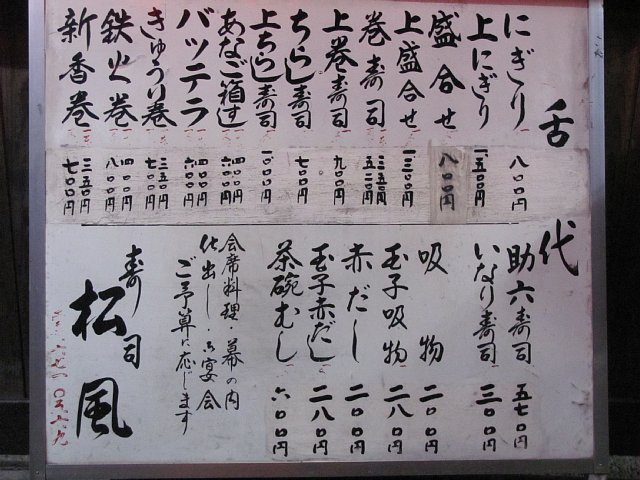 舌代
にぎり 八〇〇円
上にぎり 一五〇〇円
盛合せ 八〇〇円
上盛合せ 一三〇〇円
巻寿司
上巻寿司 九〇〇円
ちらし寿司 七〇〇円
上ちらし寿司 一〇〇〇円
あなご箱すし 六〇〇円 四〇〇円
バッテラ 六〇〇円 四〇〇円
きゅうり巻 三五〇円 七〇〇円
鉄火巻 四〇〇円 八〇〇円
新香巻 三五〇円 七〇〇円
助六寿司 五七〇円
いなり寿司 三〇〇円
吸物 二〇〇円
玉子吸物 二八〇円
赤だし 二〇〇円
玉子赤だし 二八〇円
茶碗むし 六〇〇円
会席料理・幕の内
仕出し・ご宴会
ご予算に応じます
寿司
松風